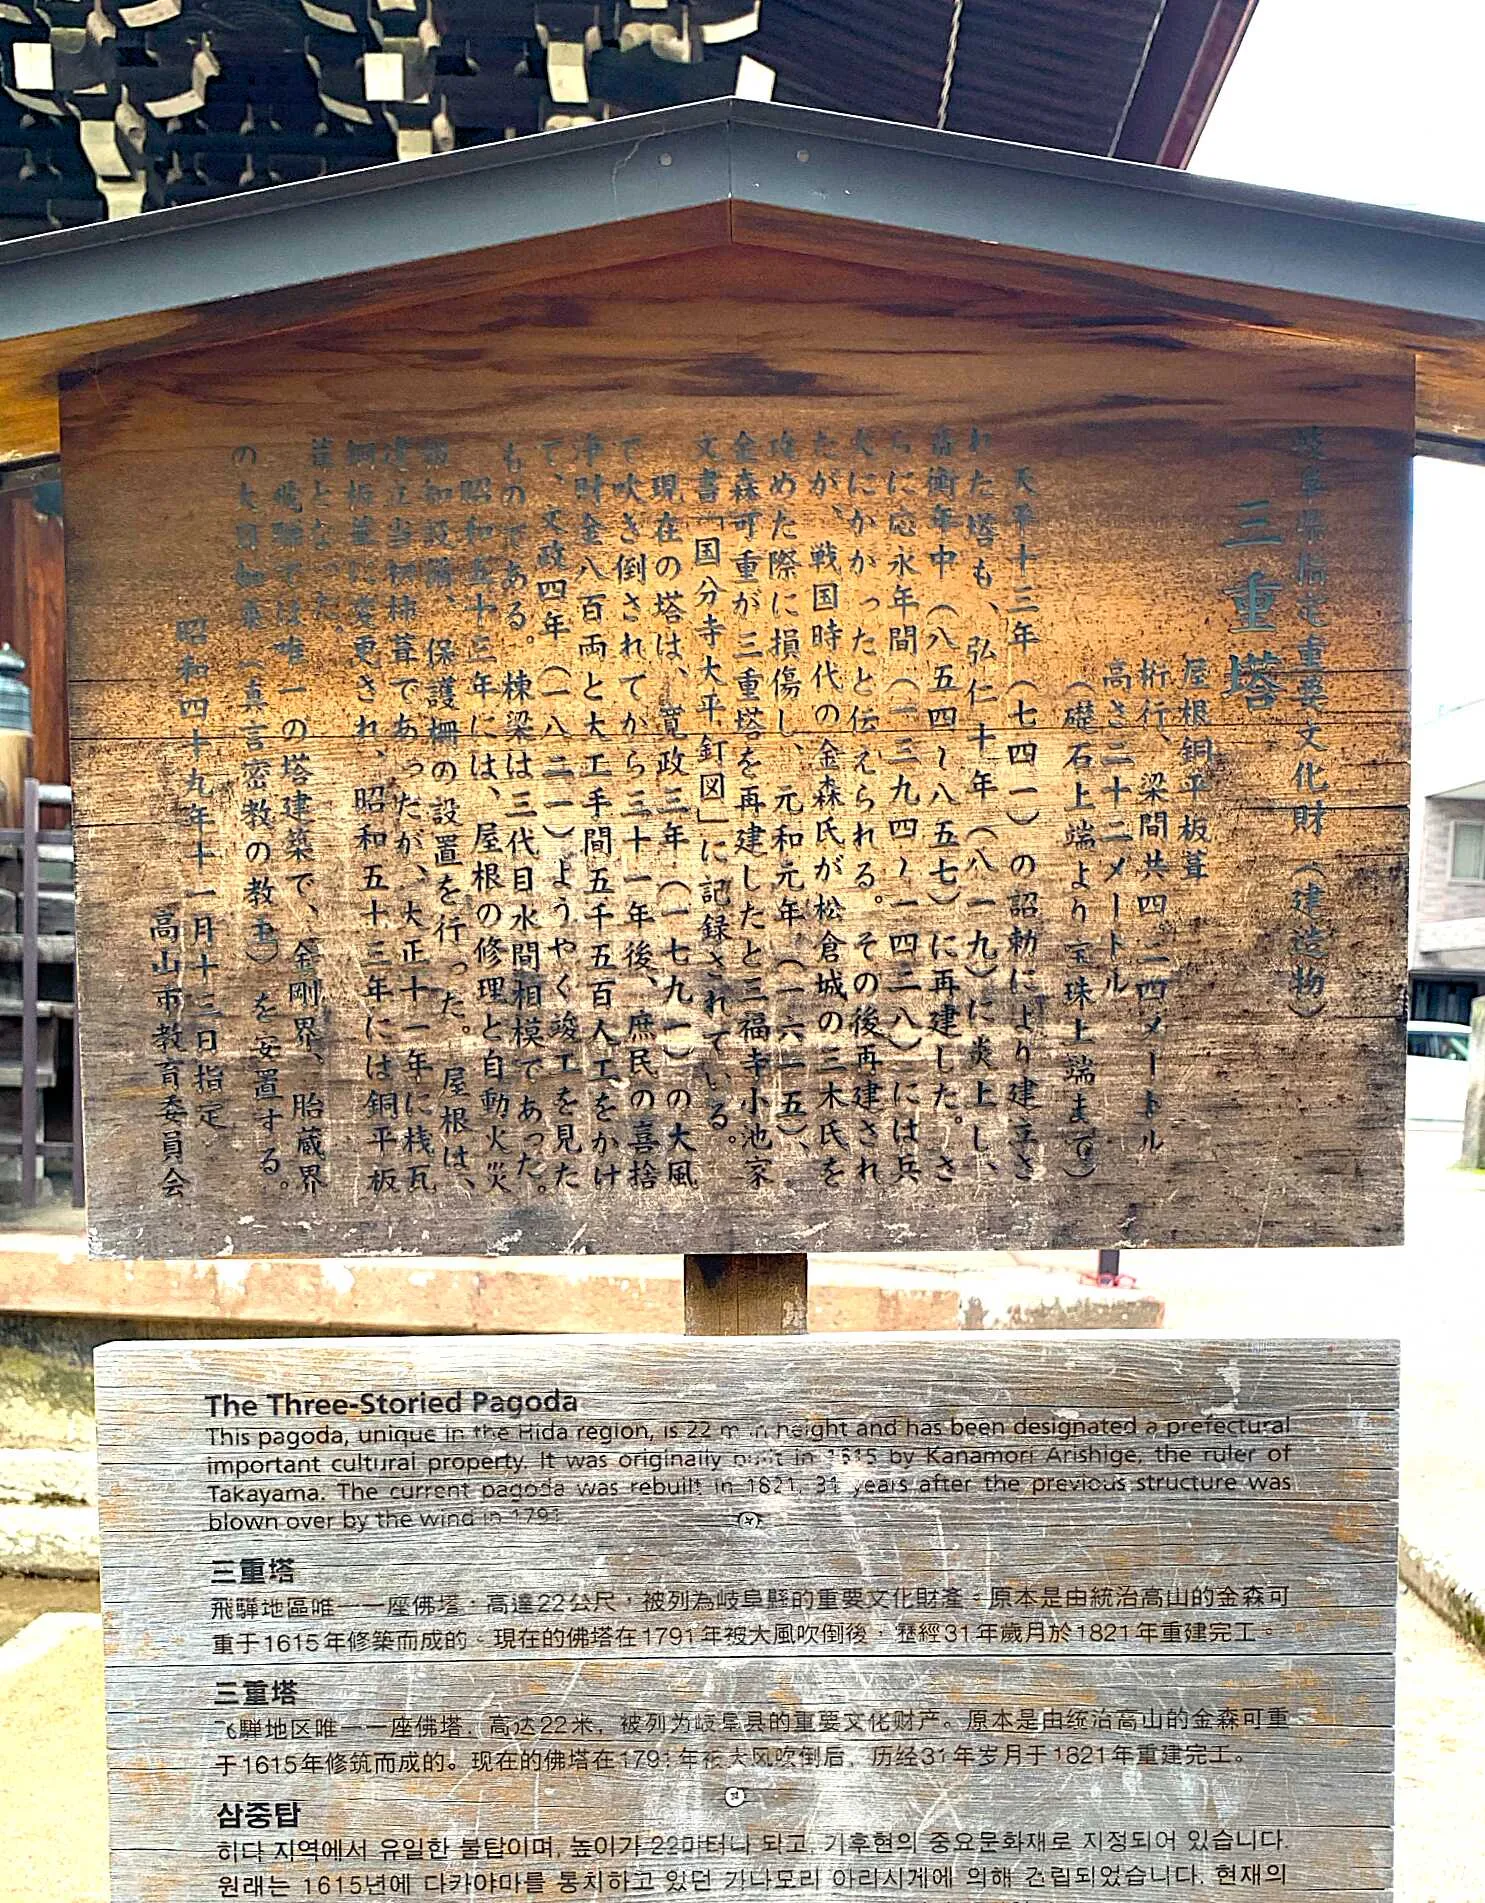 岐阜県指定重要文化財（建造物）
三重塔
屋根銅平板葺
桁行、梁間共四・二四メートル
高さ二十二メートル
（礎石上端より宝珠上端まで）
天平十三年（七四一）の詔勅により建立さ
れた塔も、弘仁十年（八一九）に炎上し、
斎衡年中（八五四〜八五七）に再建した。さ
らに応永年間（一三九四〜一四三八）には兵
火にかかったと伝えられる。その後再建され
たが、戦国時代の金森氏が松倉城の三木氏を
攻めた際に損傷し、元和元年（一六一五）、
金森可重が三重塔を再建したと三福寺小池家
文書「国分寺大平釘図」に記録されている。
現在の塔は、寛政三年（一七九一）の大風
で吹き倒されてから三十一年後、庶民の喜捨
浄財金八百両と大工手間五千五百人工をかけ
て、文政四年（一八二一）ようやく竣工を見た
ものである。棟梁は三代目水間相模であった。
昭和五十三年には、屋根の修理と自動火災
報知設備、保護柵の設置を行った。屋根は、
建立当初柿葺であったが、大正十一年に桟瓦
銅板葺に変更され、昭和五十三年には銅平板
葺となった。
飛騨では唯一の塔建築で、金剛界、胎蔵界
の大日如来（真言密教の教主）を安置する。
昭和四十九年十一月十三日指定
高山市教育委員会
The Three-Storied Pagoda
This pagoda, unique in the Hida region, is 22 m in height and has been designated a prefectural
important cultural property. It was originally built in 1615 by Kanamori Arishige, the ruler of
Takayama. The current pagoda was rebuilt in 1821, 31 years after the previous structure was
blown over by the wind in 1791.
三重塔
飛驒地區唯一一座佛塔，高達22公尺，被列為岐阜縣的重要文化財產。原本是由統治高山的金森可
重于1615年修築而成的。現在的佛塔在1791年被大風吹倒後，歷經31年歲月於1821年重建完工。
三重塔
飞驒地区唯一一座佛塔，高达22米，被列为岐阜县的重要文化财产。原本是由统治高山的金森可重
于1615年修筑而成的。现在的佛塔在1791年被大风吹倒后，历经31年岁月于1821年重建完工。
삼중탑
히다 지역에서 유일한 불탑이며, 높이가 22미터나 되고, 기후현의 중요문화재로 지정되어 있습니다.
원래는 1615년에 다카야마를 통치하고 있던 가나모리 아리시게에 의해 건립되었습니다. 현재의